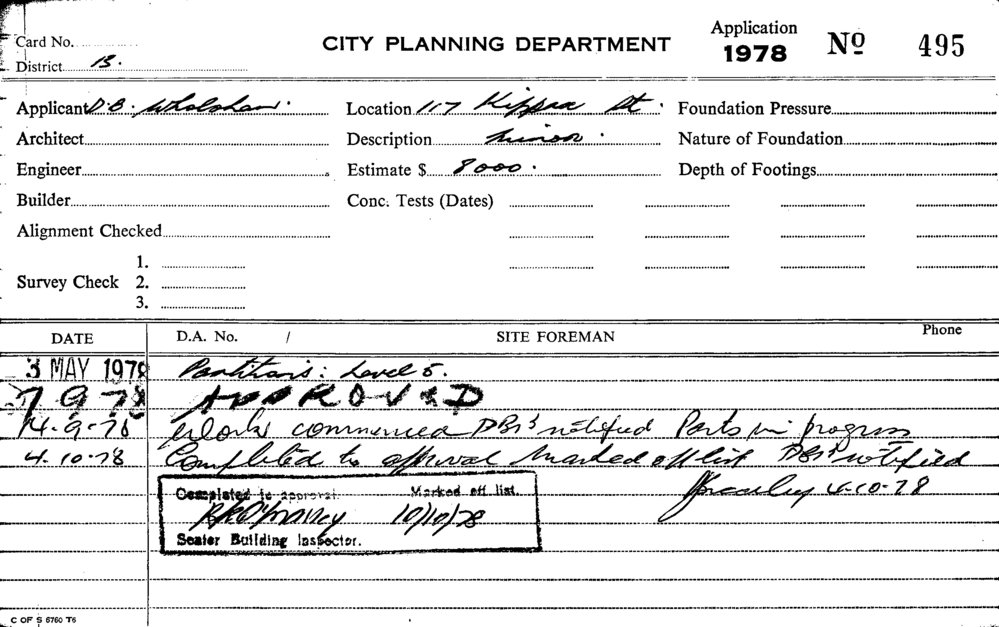 Card No.
CITY PLANNING DEPARTMENT
Application 1978 No 495
District B.
Applicant D.B. Location 117 Kippax St. Foundation Pressure
Architect Description minor. Nature of Foundation
Engineer Estimate $ 8000. Depth of Footings
Builder Conc. Tests (Dates)
Alignment Checked
1.
Survey Check 2.
3.
DATE D.A. No. / SITE FOREMAN Phone
3 MAY 1978 Partitions: Level 5.
7 9 78 APPROVED
14-9-78 Work commenced notified Parts in progress
4-10-78 Completed to approval marked off list notified
4-10-78
Completed to approval. Marked off list.
10/10/78
Senior Building Inspector.
C OF S 6760 T6